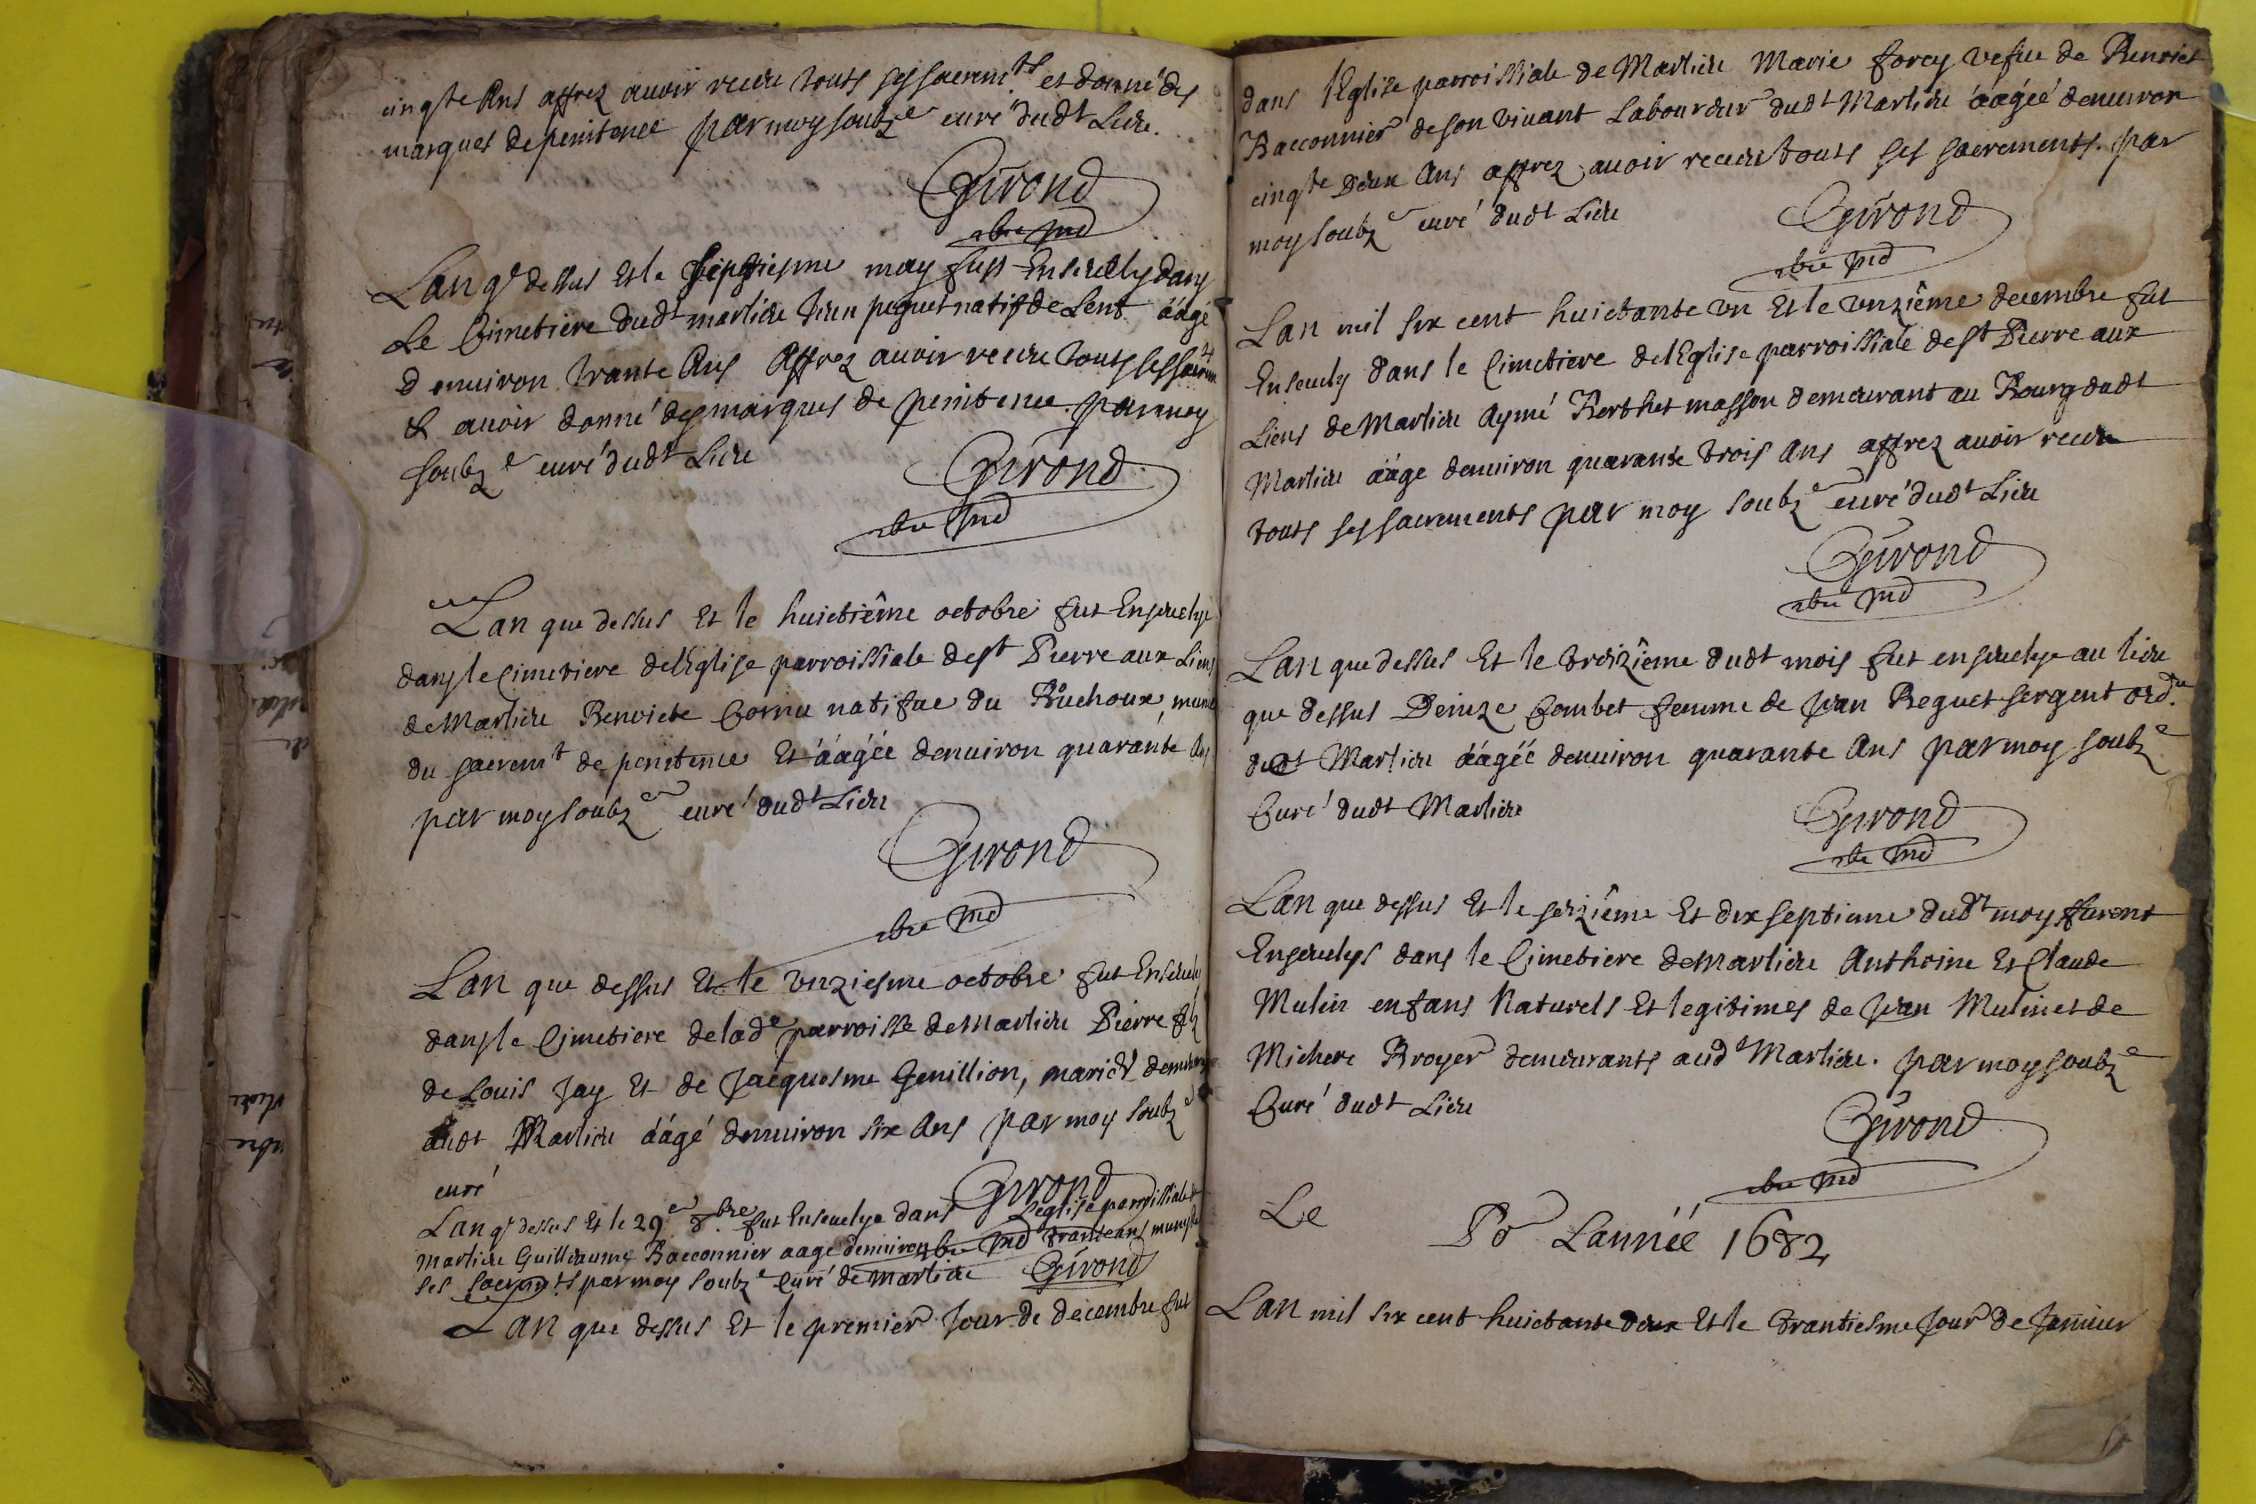 cinqte Ans affrez auoir receu touts ses sacremts et donné des
marques de penitence par moy soubze curé dudt Lieu.
Girond
Lan qe dessus Et le septiesme may fust Enseuely dans
Le Cimetiere dudt marlieu natif de Lent áágé
d enuiron trante Ans Affrez auoir receu touts ses
& auoir donné des marques de penitence par moy
soubze curé dudt Lieu
Girond
Lan que dessus Et le huictiême octobre fut Enseuelye
dans le Cimetiere de lEglise parroissiale de st Pierre aux Liens
de Marlieu Benoiete Cornu natifue du Bûchoux, munie
du sacremt de penitence Et áágée denuiron quarante Ans
par moy soubze curé dudt Lieu
Girond
Lan que dessus Et le vnziesme octobre fut Enseuely
dans le Cimetiere de lade parroisse de Marlieu Pierre filz
de Louis Jay Et de Jacquesme Genillion, mariés
audt Marlieu áágé denuiron six Ans par moy soubze
curé
Girond
Lan qe dessus Et le 29e 8bre fut Enseuelye dans l'eglise parroissiale de
Marlieu Guillieaume Bacconnier aagé denuiron trante ans muny de
ses sacremts par moy soubze Curé de Marlieu Girond
Lan que dessus Et le premier Jour de decembre fut
dans lEglise parroissiale de Marlieu Marie forey vefue de Benoict
Bacconnier de son viuant Laboureur dudt Marlieu áágéé denuiron
cinqte Deux Ans affrez auoir receu touts ses sacrements. par
moy soubze curé dudt Lieu
Girond
Lan mil six cent huictante vn Et le vnziême decembre fut
Enseuely dans le Cimetiere de lEglise parroissiale de st Pierre aux
Liens de Marlieu Aymé Berthet masson demeurant au Bourg dudt
Marlieu áágé denuiron quarante trois Ans affrez auoir receu
touts ses sacrements par moy soubze curé dudt Lieu
Girond
Lan que dessus Et le treiziême dudt mois fut enseuelye au lieu
que dessus Denize Combet femme de Jean Reguet sergent ordre
dudt Marlieu áágéé denuiron quarante Ans par moy soubze
Curé dudt Marlieu
Girond
Lan que dessus Et le seiziême Et dix septieme dudt moys furent
Enseuelys dans le Cimetiere de Marlieu Anthoine Et Claude
Mulin enfans Naturels Et legitimes de Jean Mulin et de
Michere Broyer demeurants aude Marlieu. par moy soubze
Curé dudt Lieu
Girond
Le
Pr Lannéé 1682
Lan mil six cent huictante deux Et le trantiesme Jour de Januier